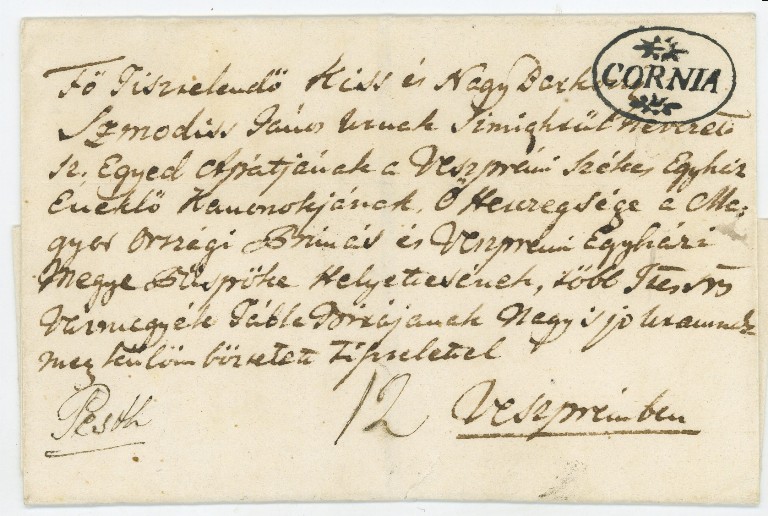 CORNIA
Fő Tisztelendő Kiss és Nagy
Szmodiss János Urnak Simighrül nevezett
sz. Egyed Apátjának a Veszprémi Székes Egyház
Éneklő Kanonokjának, Ő Herczegsége a Ma:
gyar Országi Prímás és Veszprémi Egyházi
Megye Püspöke Helyettesének, több
Vármegyék Tábla Birájának Nagy
meg külömböztetett tisztelettel
Pesth 12 Veszprémben